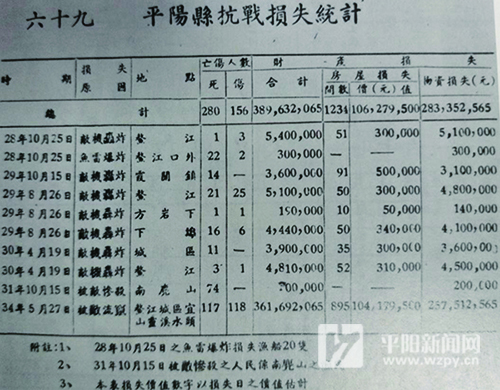 六十九 平陽縣抗戰損失統計
時期 損失原因 地點 亡傷人數 財產損失
死 傷 合計 房屋損失 物資損失(元)
間數 價(元)值
總計 280 156 389,632,065 1234 106,279,500 283,352,565
28年10月25日 敵機轟炸 鰲江 1 3 5,400,000 51 300,000 5,100,000
28年10月25日 魚雷爆炸 鰲江口外 22 2 300,000 — — 300,000
29年10月15日 敵機轟炸 霞關鎮 14 — 3,600,000 91 500,000 3,100,000
29年8月26日 敵機轟炸 鰲江 21 25 5,100,000 50 300,000 4,800,000
29年8月26日 敵機轟炸 方岩下 1 1 190,000 10 50,000 140,000
29年8月26日 敵機轟炸 下埠 16 6 4,440,000 50 340,000 4,100,000
30年4月19日 敵機轟炸 城區 11 — 3,900,000 35 300,000 3,600,000
30年4月19日 敵機轟炸 鰲江 3 1 4,810,000 52 310,000 4,500,000
31年10月15日 被敵慘殺 南麂山 74 — 200,000 — — 200,000
34年5月27日 被敵流竄 鰲江城區宜山靈溪水頭 117 118 361,692,065 895 104,179,500 257,512,565
附註:1、 28年10月25日之魚雷爆炸損失漁船20隻
2、 31年10月15日被敵慘殺之人民係南麂山之
3、 本表損失價值數字以損失日之價值估計
平阳新闻网
www.wzpy.cn